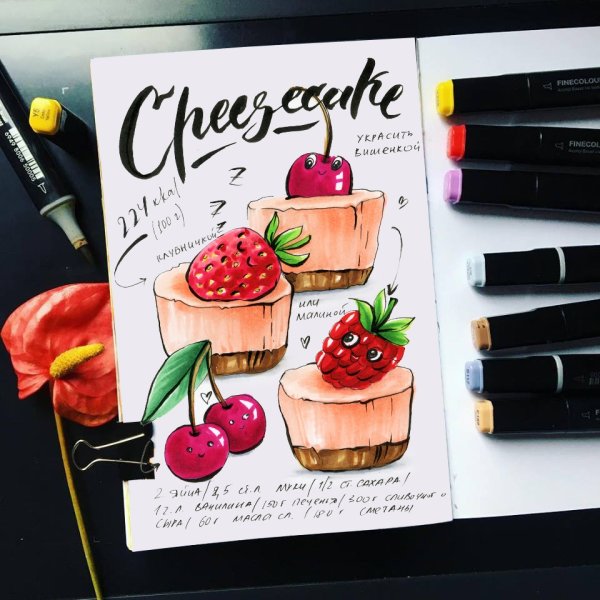 Cheesecake
УКРАСИТЬ
ВИШЕНКОЙ
224 kkal
(100 г)
КЛУБНИЧКОЙ
ИЛИ
МАЛИНОЙ
z
z
z
2 ЯЙЦА / 2,5 СТ.Л МУКИ / 1/2 СТ. САХАРА /
1 Ч.Л. ВАНИЛИНА / 150 г ПЕЧЕНЬЯ / 300 г СЛИВОЧНОГО
СЫРА / 60 г МАСЛА СЛ. / 180 г СМЕТАНЫ
FINECOLOUR
FINECOLOUR